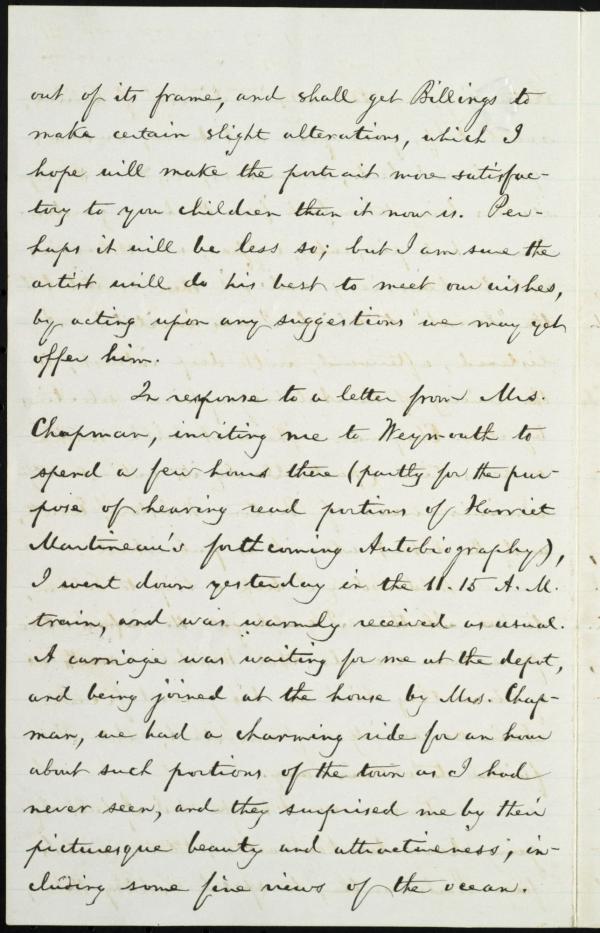 out of its frame, and shall get Billings to
make certain slight alterations, which I
hope will make the portrait more satisfac-
tory to you children than it now is. Per-
haps it will be less so; but I am sure the
artist will do his best to meet our wishes,
by acting upon any suggestions we may yet
offer him.
In response to a letter from Mrs.
Chapman, inviting me to Weymouth to
spend a few hours there (partly for the pur-
pose of hearing read portions of Harriet
Martineau's forthcoming Autobiography),
I went down yesterday in the 11.15 A. M.
train, and was warmly received as usual.
A carriage was waiting for me at the depot,
and being joined at the house by Mrs. Chap-
man, we had a charming ride for an hour
about such portions of the town as I had
never seen, and they surprised me by their
picturesque beauty and attractiveness, in-
cluding some fine views of the ocean.